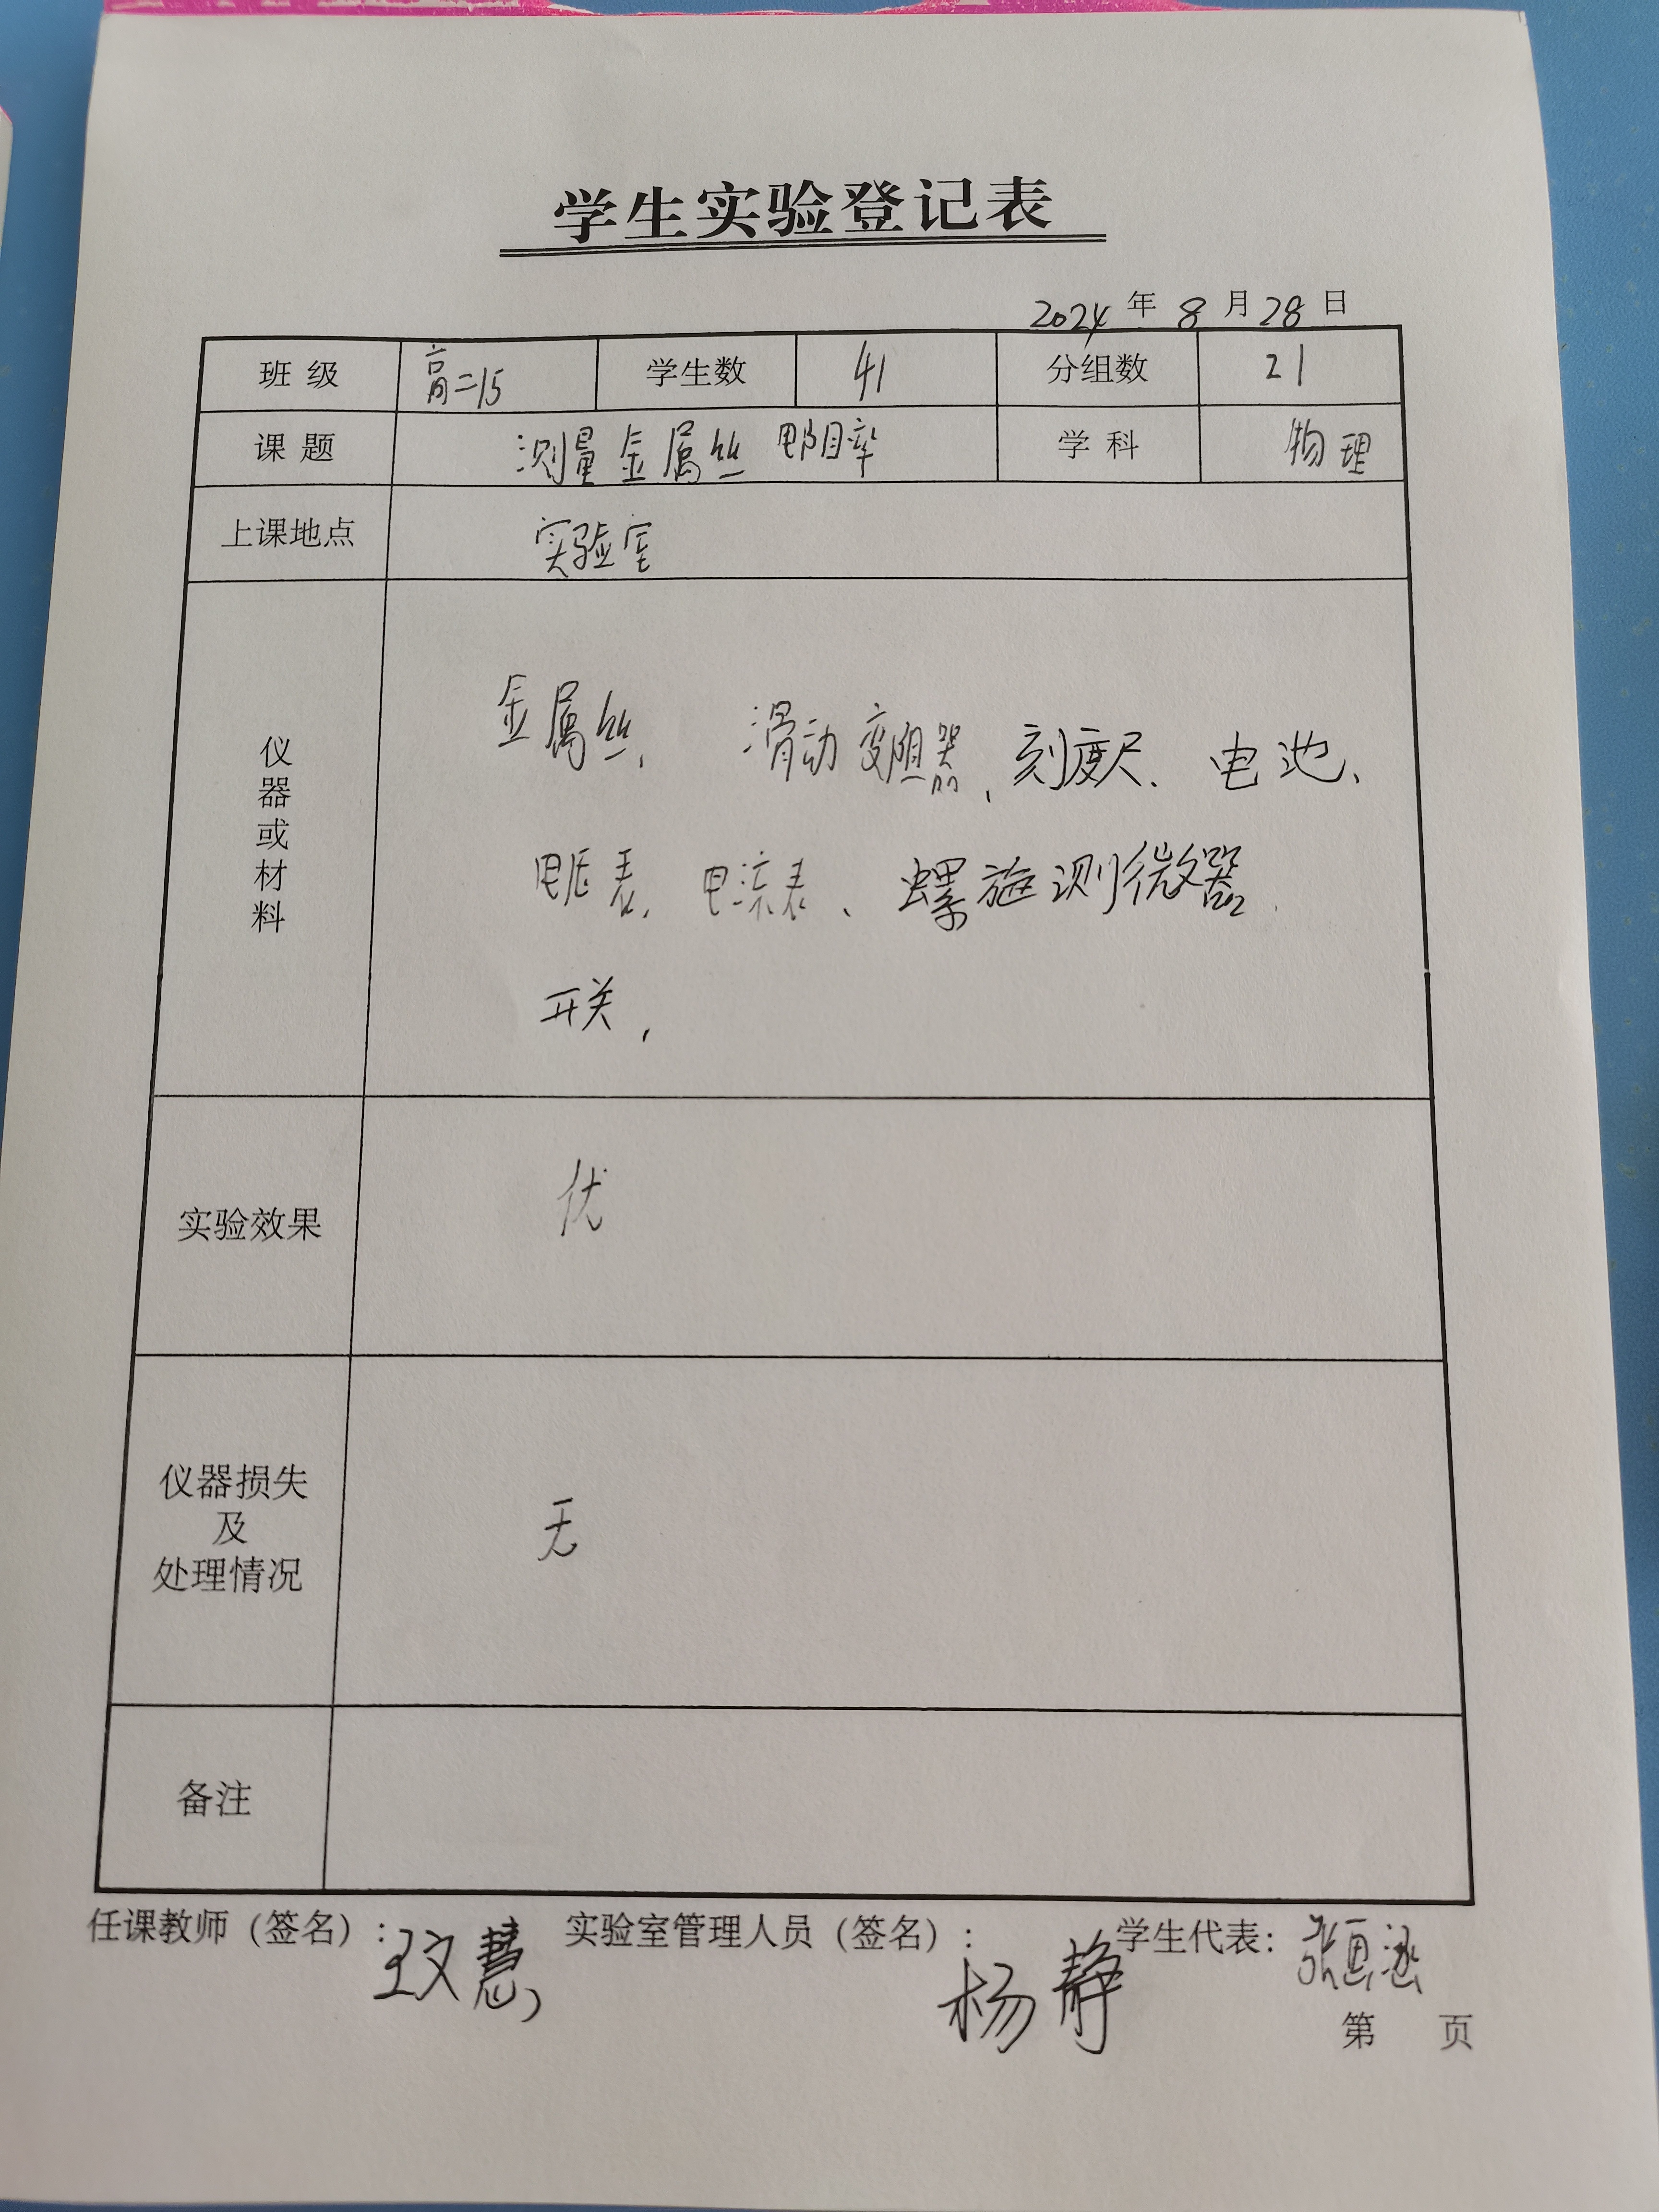 学生实验登记表
2024 年 8 月 28 日
班 级 高二15 学生数 41 分组数 21
课 题 测量金属丝电阻率 学 科 物理
上课地点 实验室
仪器或材料
金属丝、 滑动变阻器、刻度尺、电池、
电压表、电流表、螺旋测微器、
开关、
实验效果 优
仪器损失
及
处理情况
无
备注
任课教师（签名）：王文慧 实验室管理人员（签名）：杨静 学生代表：张思涵
第 页